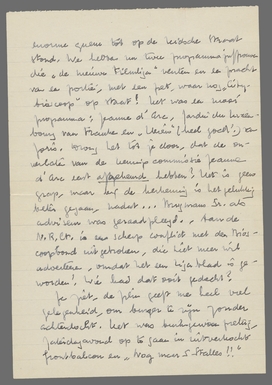 enorme queue tot op de Leidsche straat
stond. We hebben nu twee programma
die "de nieuwe Filmliga" venten en een pracht
van een portier, met een pet, waar nog "City-
bioscoop" op staat! Het was een mooi
programma: Jeanne d'Arc, Jardin du Luxem-
bourg van Francken en (heel goed!),
parijs. Vroeg het tot je door, dat de
van de commissie Jeanne
d'Arc eerst afgekeurd hebben? Het is geen
grap, maar bij de herkeuring is het gelukkig
beter gegaan, nadat ... Sr. als
adviseur was geraadpleegd... Aan de
N.R.Ct. is een scherp conflict met den Bios-
coopbond uitgebroken, die niet meer wil
adverteeren, omdat het een bijblad is ge-
worden! Wie had dat ooit gedacht?
Je ziet, de film geeft me heel veel
gelegenheid, om burger te zijn zonder
achterdocht. Het was buitengewoon prettig,
Zaterdagavond op te gaan in uitverkocht
frontbalcon en "Nog maar 5 Stalles!!"